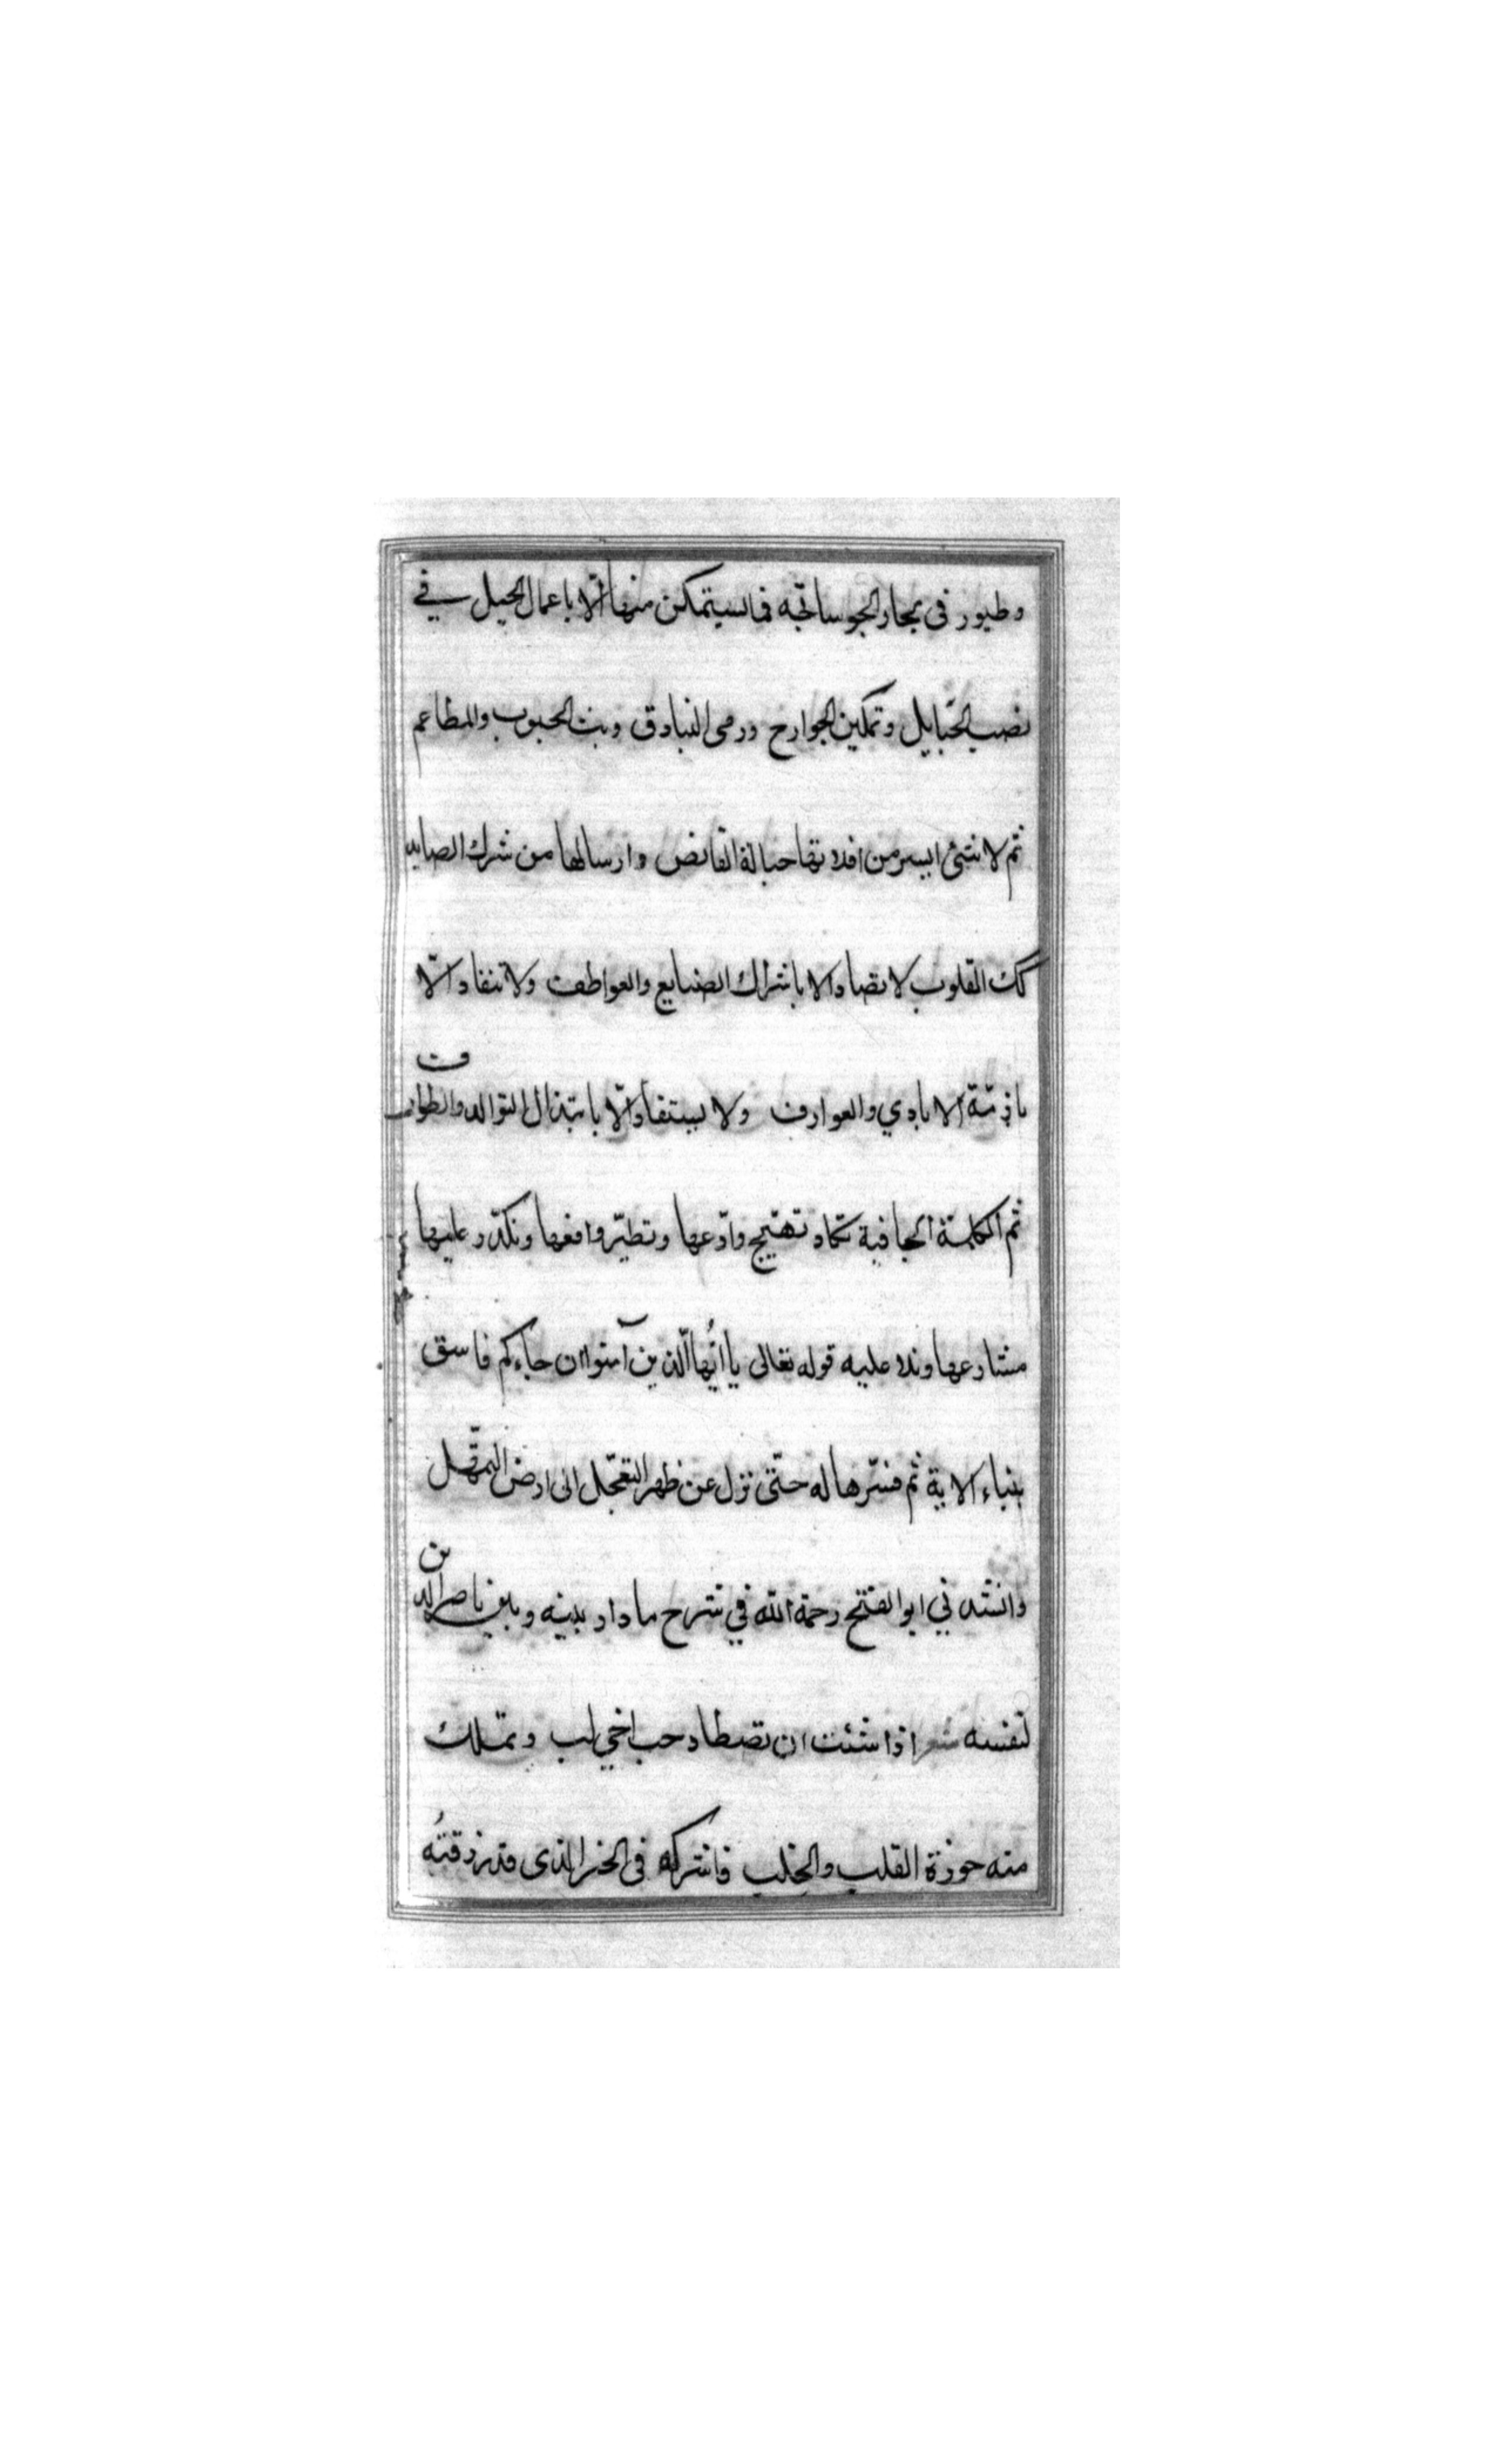 وطيور في بحار الجو سابحة فما يستمكن منها الّا باعمال الحيل في
نصب الحبايل وتمكين الجوارح ورمى البنادق وبث الحبوب والمطاعم
ثم لا شئ ايسر من افلاتها حبالة القانص وارسالها من شرك الصايد
كك القلوب لا تصاد الا باشراك الصنايع والعواطف ولا تنقاد الّا
بازمّة الايادي والعوارف ولا يستفاد الّا بابتذال التوالد والطوارف
ثم الكلمة الجافية تكاد تهيّج وادّعها وتطيّر واقعها وتكدّر عليها
مشارعها وتلا عليه قوله تعالى يا ايُّها الّذين آمنوا ان جاءكم فاسق
بنباء الاية ثم فسّرها له حتّى نزل عن ظهر التعجّل الى ارض التمهّل
وانشدني ابو الفتح رحمة الله في شرح ما دار بينه وبين ناصر الدين
لنفسه شعر اذا شئت ان تصطاد حب اخي لب وتملك
منه حوزة القلب والخلب فاشركه في الخير الذى قد رزقتُه